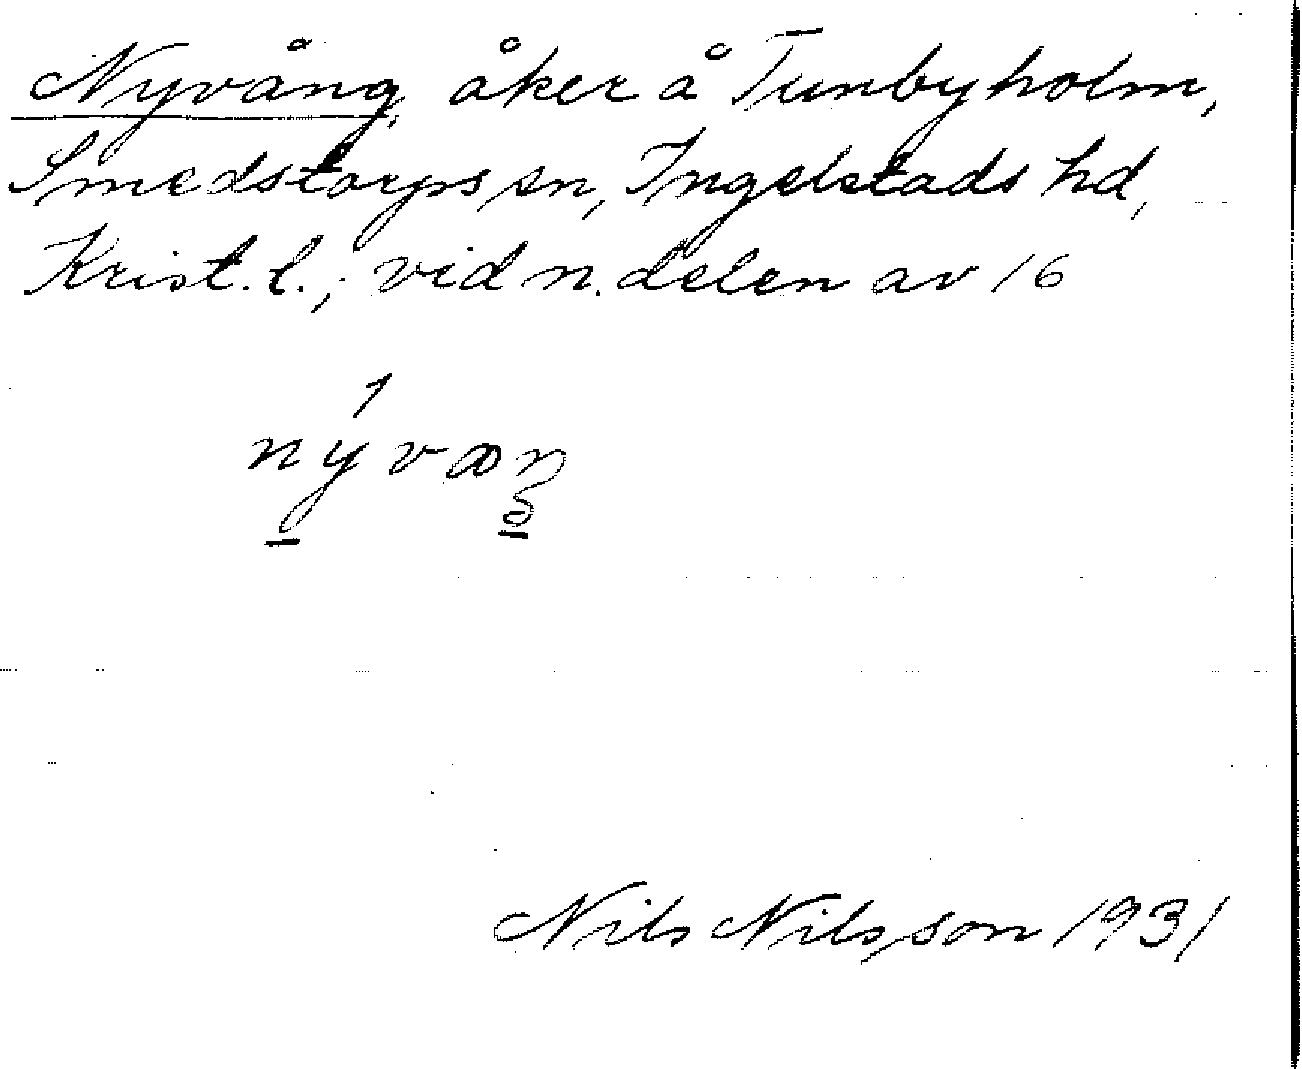 Nyvång, åker å Tunbyholm,
Smedstorps sn, Ingelstads hd,
Krist. l.; vid n. delen av 16
nývaŋ
Nils Nilsson 1931